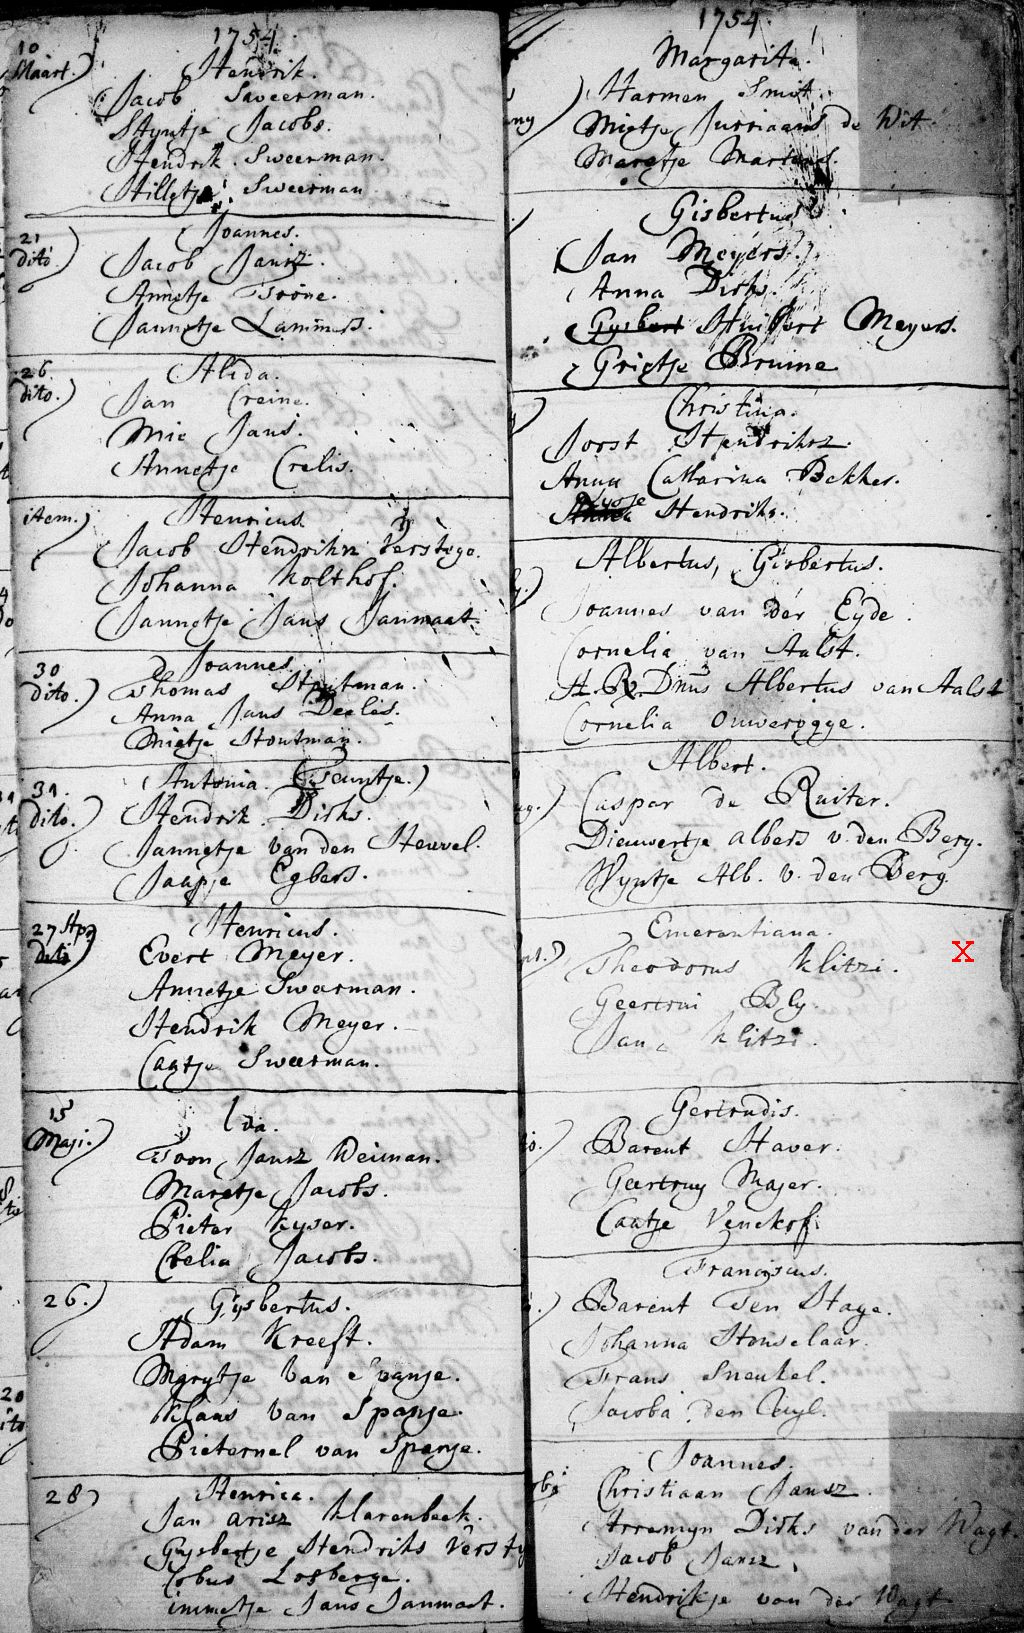 1754.
10
Maart.)
Hendrik.
Jacob Sweerman.
Hyntje Jacobs.
Hendrik Sweerman.
Hilletje Sweerman
21
dito.)
Joannes.
Jacob Jansz.
Annetje Toone.
Jannetje Lammers.
26
dito.)
Alida.
Jan Creine.
Mie Jans.
Annetje Crelis.
item.)
Henricus
Jacob Hendrikz Verstege.
Johanna Kolthof.
Jannetje Jans Janmaat.
30
dito.)
Joannes.
Thomas Stoutman.
Anna Jans Deelis.
Mietje Stoutman.
31.
dito.)
Antonia (Teuntje.)
Hendrik Dirks.
Jannetje van den Heuvel.
Jaapje Egbers.
27 Apr
Henricus.
Evert Meyer.
Annetje Sweerman.
Hendrik Meyer.
Caatje Sweerman.
15
Maji.)
Ida.
Toon Jansz Weiman.
Maretje Jacobs.
Pieter Kyser.
Celia Jacobs.
26.)
Gijsbertus.
Adam Kreeft.
Marytje van Spanje.
Klaas van Spanje.
Pieternel van Spanje.
28)
Henrica.
Jan Arisz Klarenbeek.
Gysbertje Hendriks Verste
Cobus Losberge.
immetje Jans Janmaat.
1754.
Margarita.
Harmen Smit.
Mietje Jurriaans de Wit.
Maretje Martens.
Gisbertus
Jan Meyers.
Anna Dirks.
Gysbert Huibert Meyers.
Grietje Bruine
Christina.
Joost Hendriksz.
Anna Catharina Bekker.
Lysje
Hendriks.
Albertus, Gisbertus.
Joannes van der Eyde.
Cornelia van Aalst.
H. R. Dnus Albertus van Aalst
Cornelia Ouwerogge.
Albert.
Caspar de Ruiter.
Dieuwertje Albers v. den Berg.
Wyntje Alb. v. den Berg.
Emerantiana.
Theodorus Klitzi.
X
Geertrui Bly.
Jan Klitzi.
Gertrudis.
Barent Haver.
Geertruy Majer.
Caatje Venekof.
Franciscus.
Barent Ten Hage.
Johanna Honselaar.
Frans Sneukel.
Jacoba den Uyl.
Joannes.
Christiaan Jansz.
Arremyn Dirks van der Wagt.
Jacob Jansz
Hendrikje van der Wagt